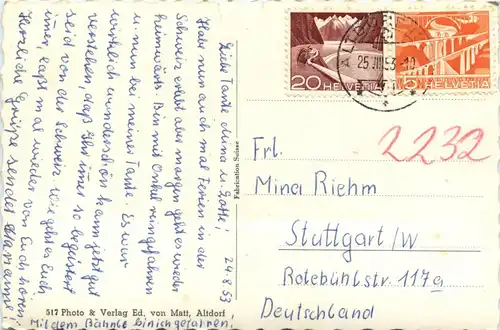 24.8.53
Liebe Tante Mina u. Gotte!
Habe nun auch mal Ferien in der
Schweiz erlebt aber morgen geht es wieder
heimwärts. Bin mit Onkel reingefahren
u. nun bei meiner Tante. Es war
wirklich wunderschön kann jetzt gut
verstehen, daß Ihr immer so begeistert
seid von der Schweiz. Wie geht es Euch
immer, laßt mal wieder von Euch hören.
Herzliche Grüße sendet Marianne!
Mit dem Bähnle bin ich gefahren!
517 Photo & Verlag Ed. von Matt, Altdorf
Fabrication Suisse
20 HELVETIA
5 HELVETIA
25.VIII.53
2232
Frl.
Mina Riehm
Stuttgart/W
Rotebühlstr. 117a
Deutschland